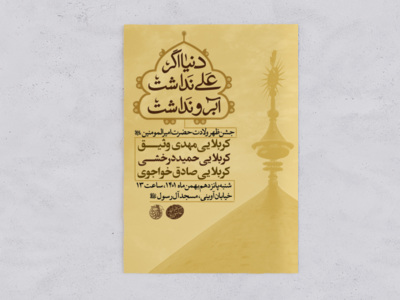 دنیا اگر
علی نداشت
آبرو نداشت
جشن ظهر ولادت حضرت امیرالمومنین
کربلایی مهدی وثیق
کربلایی حمید درخشی
کربلایی صادق خواجوی
شنبه پانزدهم بهمن ماه ۱۴۰۱، ساعت ۱۳
خیابان آوینی، مسجد آل رسول